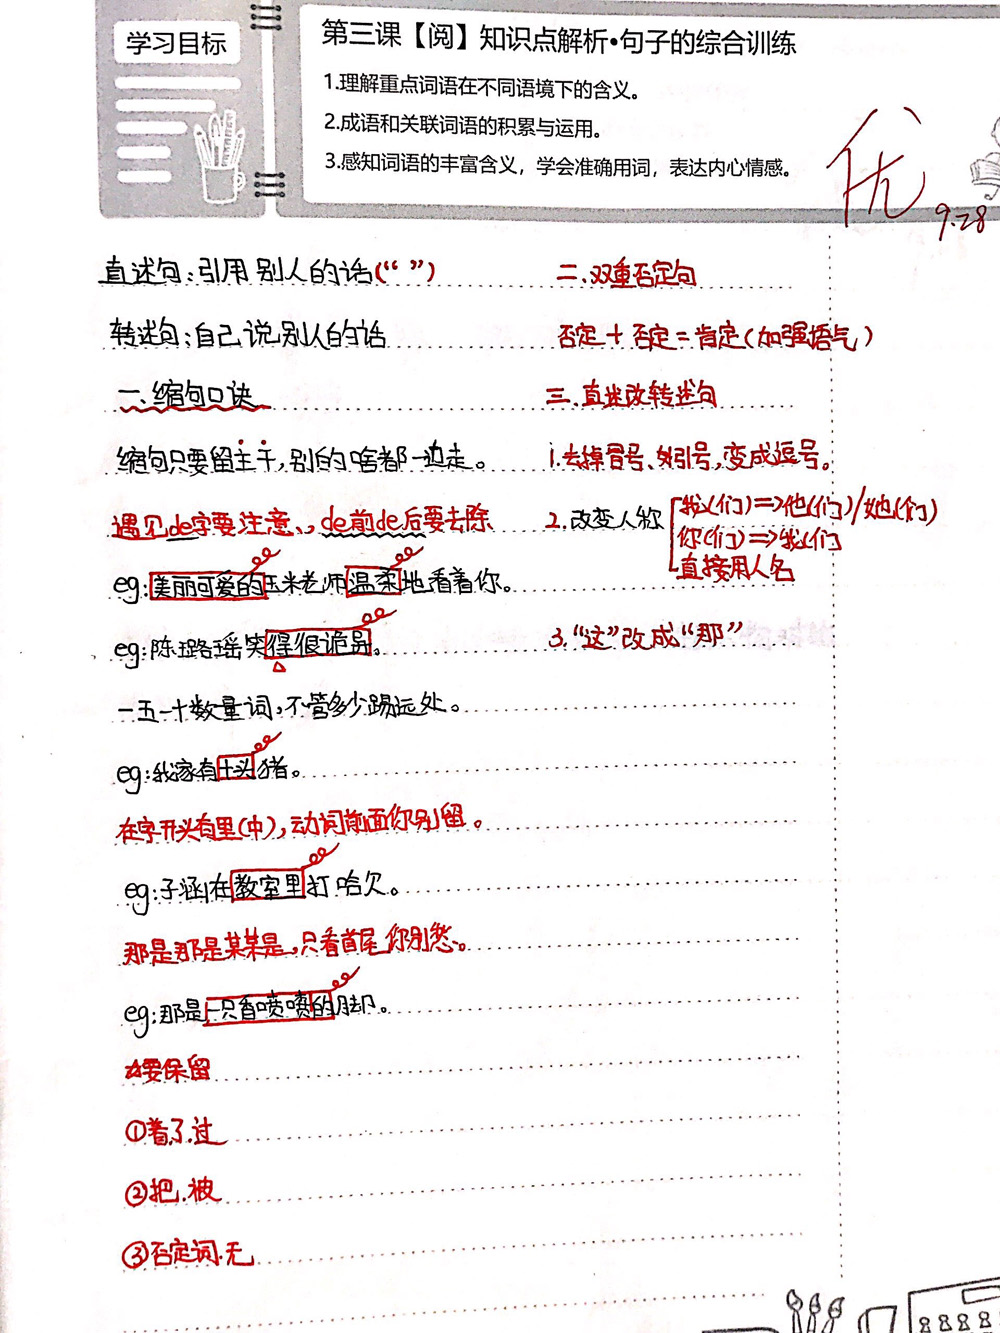 学习目标
第三课【阅】知识点解析•句子的综合训练
1.理解重点词语在不同语境下的含义。
2.成语和关联词语的积累与运用。
3.感知词语的丰富含义，学会准确用词，表达内心情感。
优
9.28
直述句:引用别人的话(“ ”)
转述句:自己说别人的话
一、缩句口诀
缩句只要留主干,别的啥都一边走。
遇见de字要注意、,de前de后要去除
eg:美丽可爱的玉米老师温柔地看着你。
eg:陈璐瑶笑得很诡异。
一五一十数量词,不管多少踢远处。
eg:我家有十头猪。
在字开头有里(中),动词前面你别留。
eg:子涵在教室里打哈欠。
那是那是某某是,只看首尾你别愁。
eg:那是一只香喷喷的脚。
要保留
①着.了.过
②把.被
③否定词.无
二.双重否定句
否定+否定=肯定(加强语气)
三.直述改转述句
1.去掉冒号、外引号,变成逗号。
2.改变人称
我(们)=>他(们)/她(们)
你(们)=>我(们)
直接用人名
3.“这”改成“那”